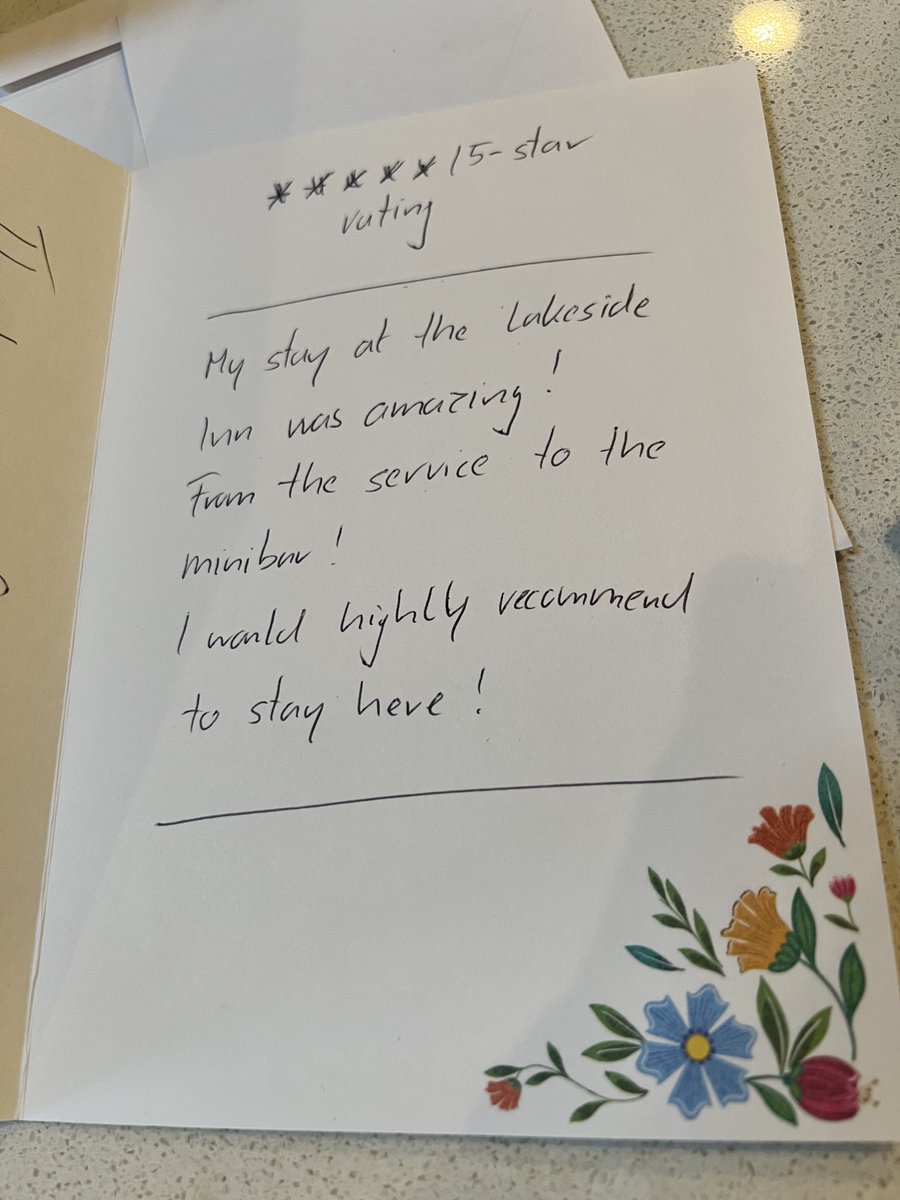 ***** / 5-star
rating
My stay at the Lakeside
Inn was amazing!
From the service to the
minibar!
I would highly recommend
to stay here!